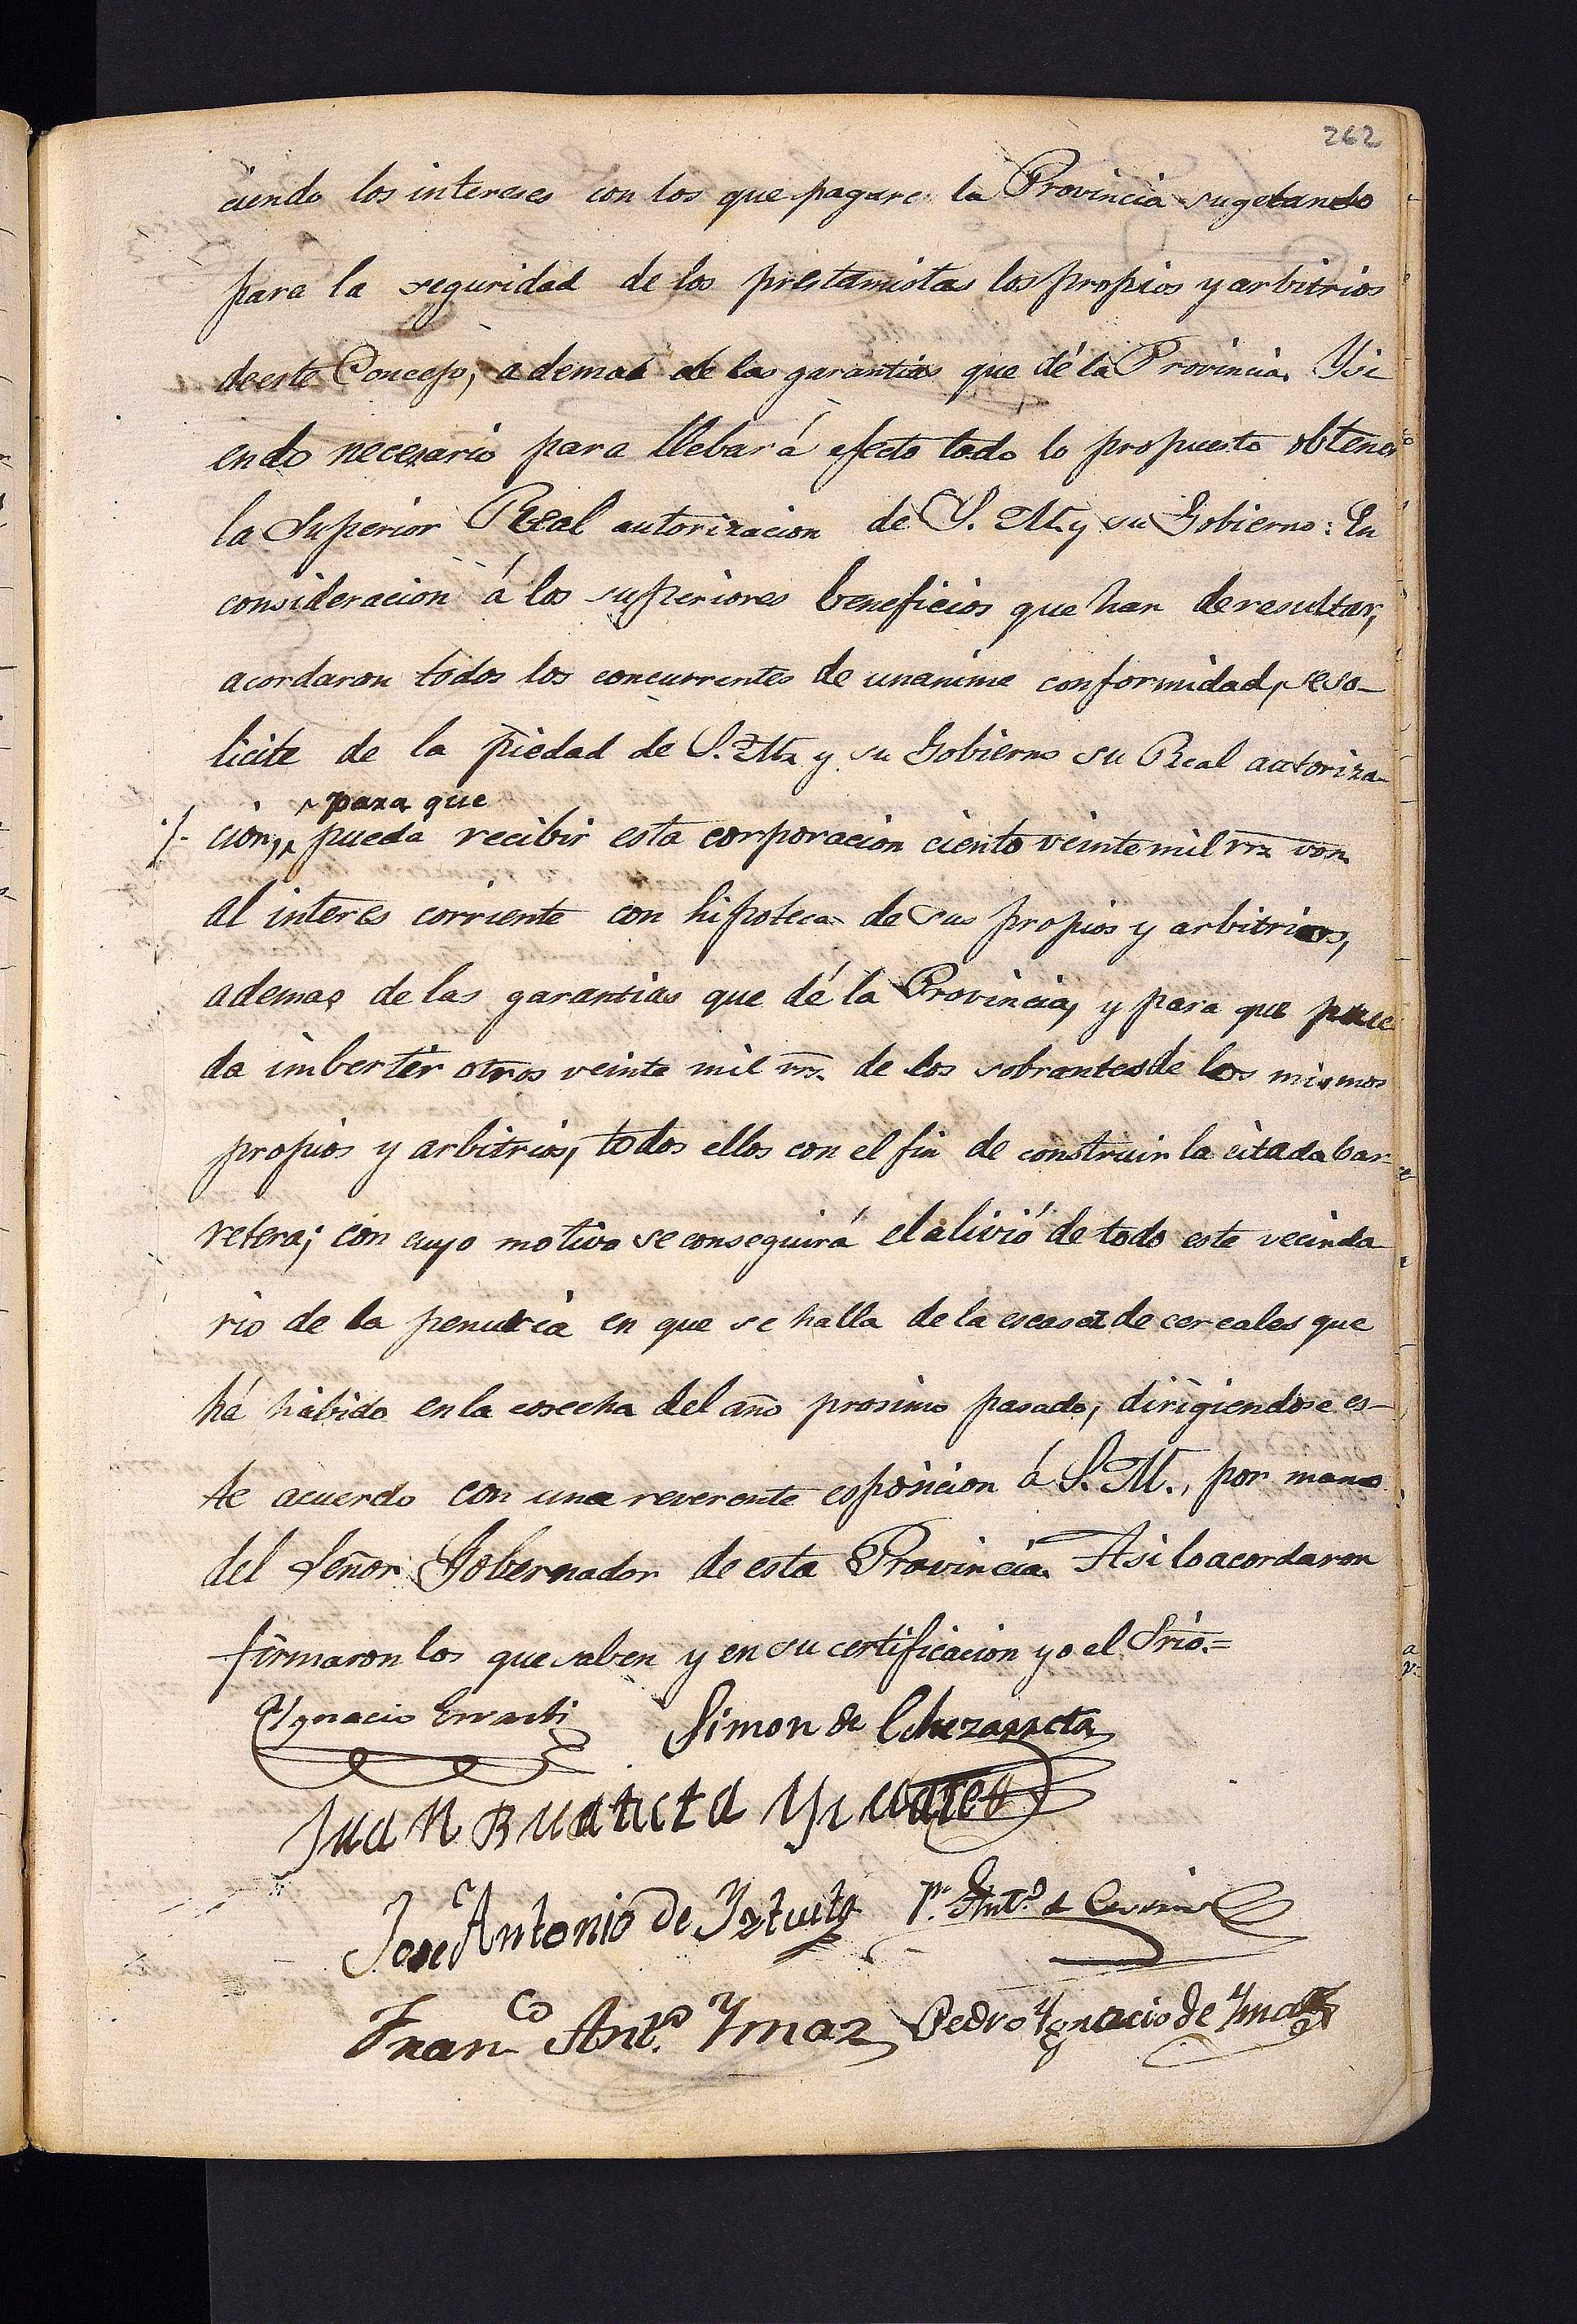 262
ciendo los intereses con los que pagare la Provincia sugetando
para la seguridad de los prestamistas los propios y arbitrios
de este Concejo, ademas de las garantias que dé la Provincia. Y si
endo necesario para llebar á efecto todo lo propuesto obtener
la Superior Real autorizacion de S. M. y su Gobierno: En
consideracion á los superiores beneficios que han de resultar,
acordaron todos los concurrentes de unanime conformidad, se so-
licite de la piedad de S. M. y su Gobierno su Real autoriza-
para que
ción, pueda recibir esta corporacion ciento veinte mil rrs. von.
al interes corriente con hipoteca de sus propios y arbitrios,
ademas de las garantias que dé la Provincia, y para que pue
da imbertir otros veinte mil rrs. de los sobrantes de los mismos
propios y arbitrios, todos ellos con el fin de construir la citada car-
retera; con cuyo motivo se conseguirá el alivió de todo este vecinda
rio de la penuria en que se halla de la escasez de cereales que
há habido en la cosecha del año prosimo pasado, dirigiendose es-
te acuerdo con una reverente esposicion á S. M., por mano
del Señor Gobernador de esta Provincia. Asi lo acordaron
firmaron los que saben y en su certificacion yo el Srio.=
Ygnacio Errasti Simon de Echezarreta
Juan Bautista
José Antonio de Yztueta P. Anto. de
Franco. Anto. Ymaz Pedro Ygnacio de Ymaz